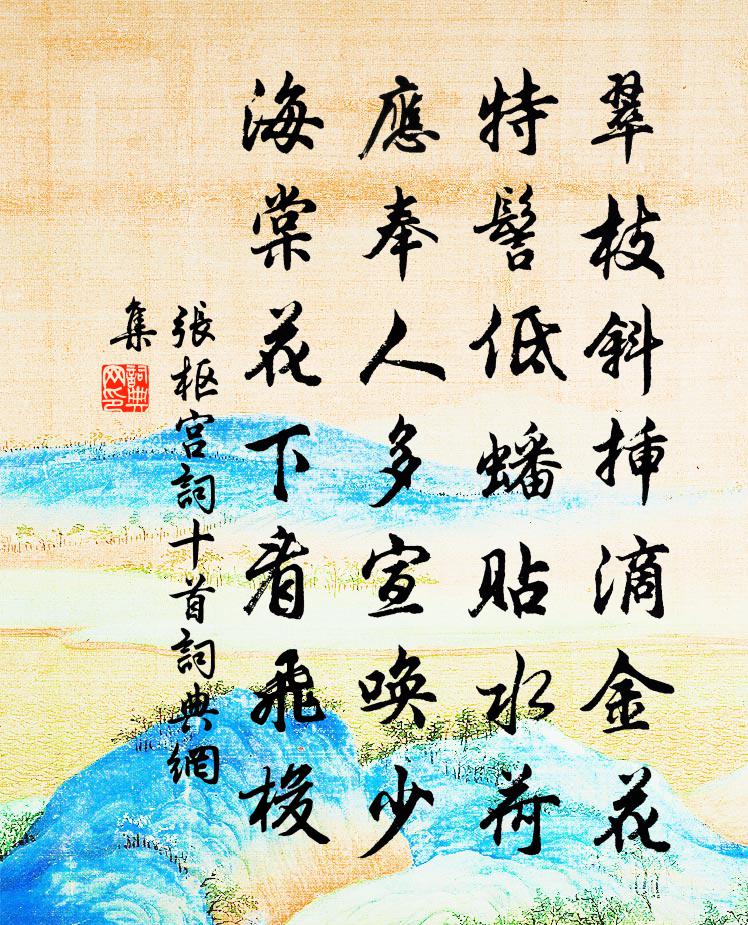 翠枝斜插滴金花
特髻低蟠貼水荷
應奉人多宣喚少
海棠花下看飛梭
張枢宫詞十首詞典網
集
詞典網印